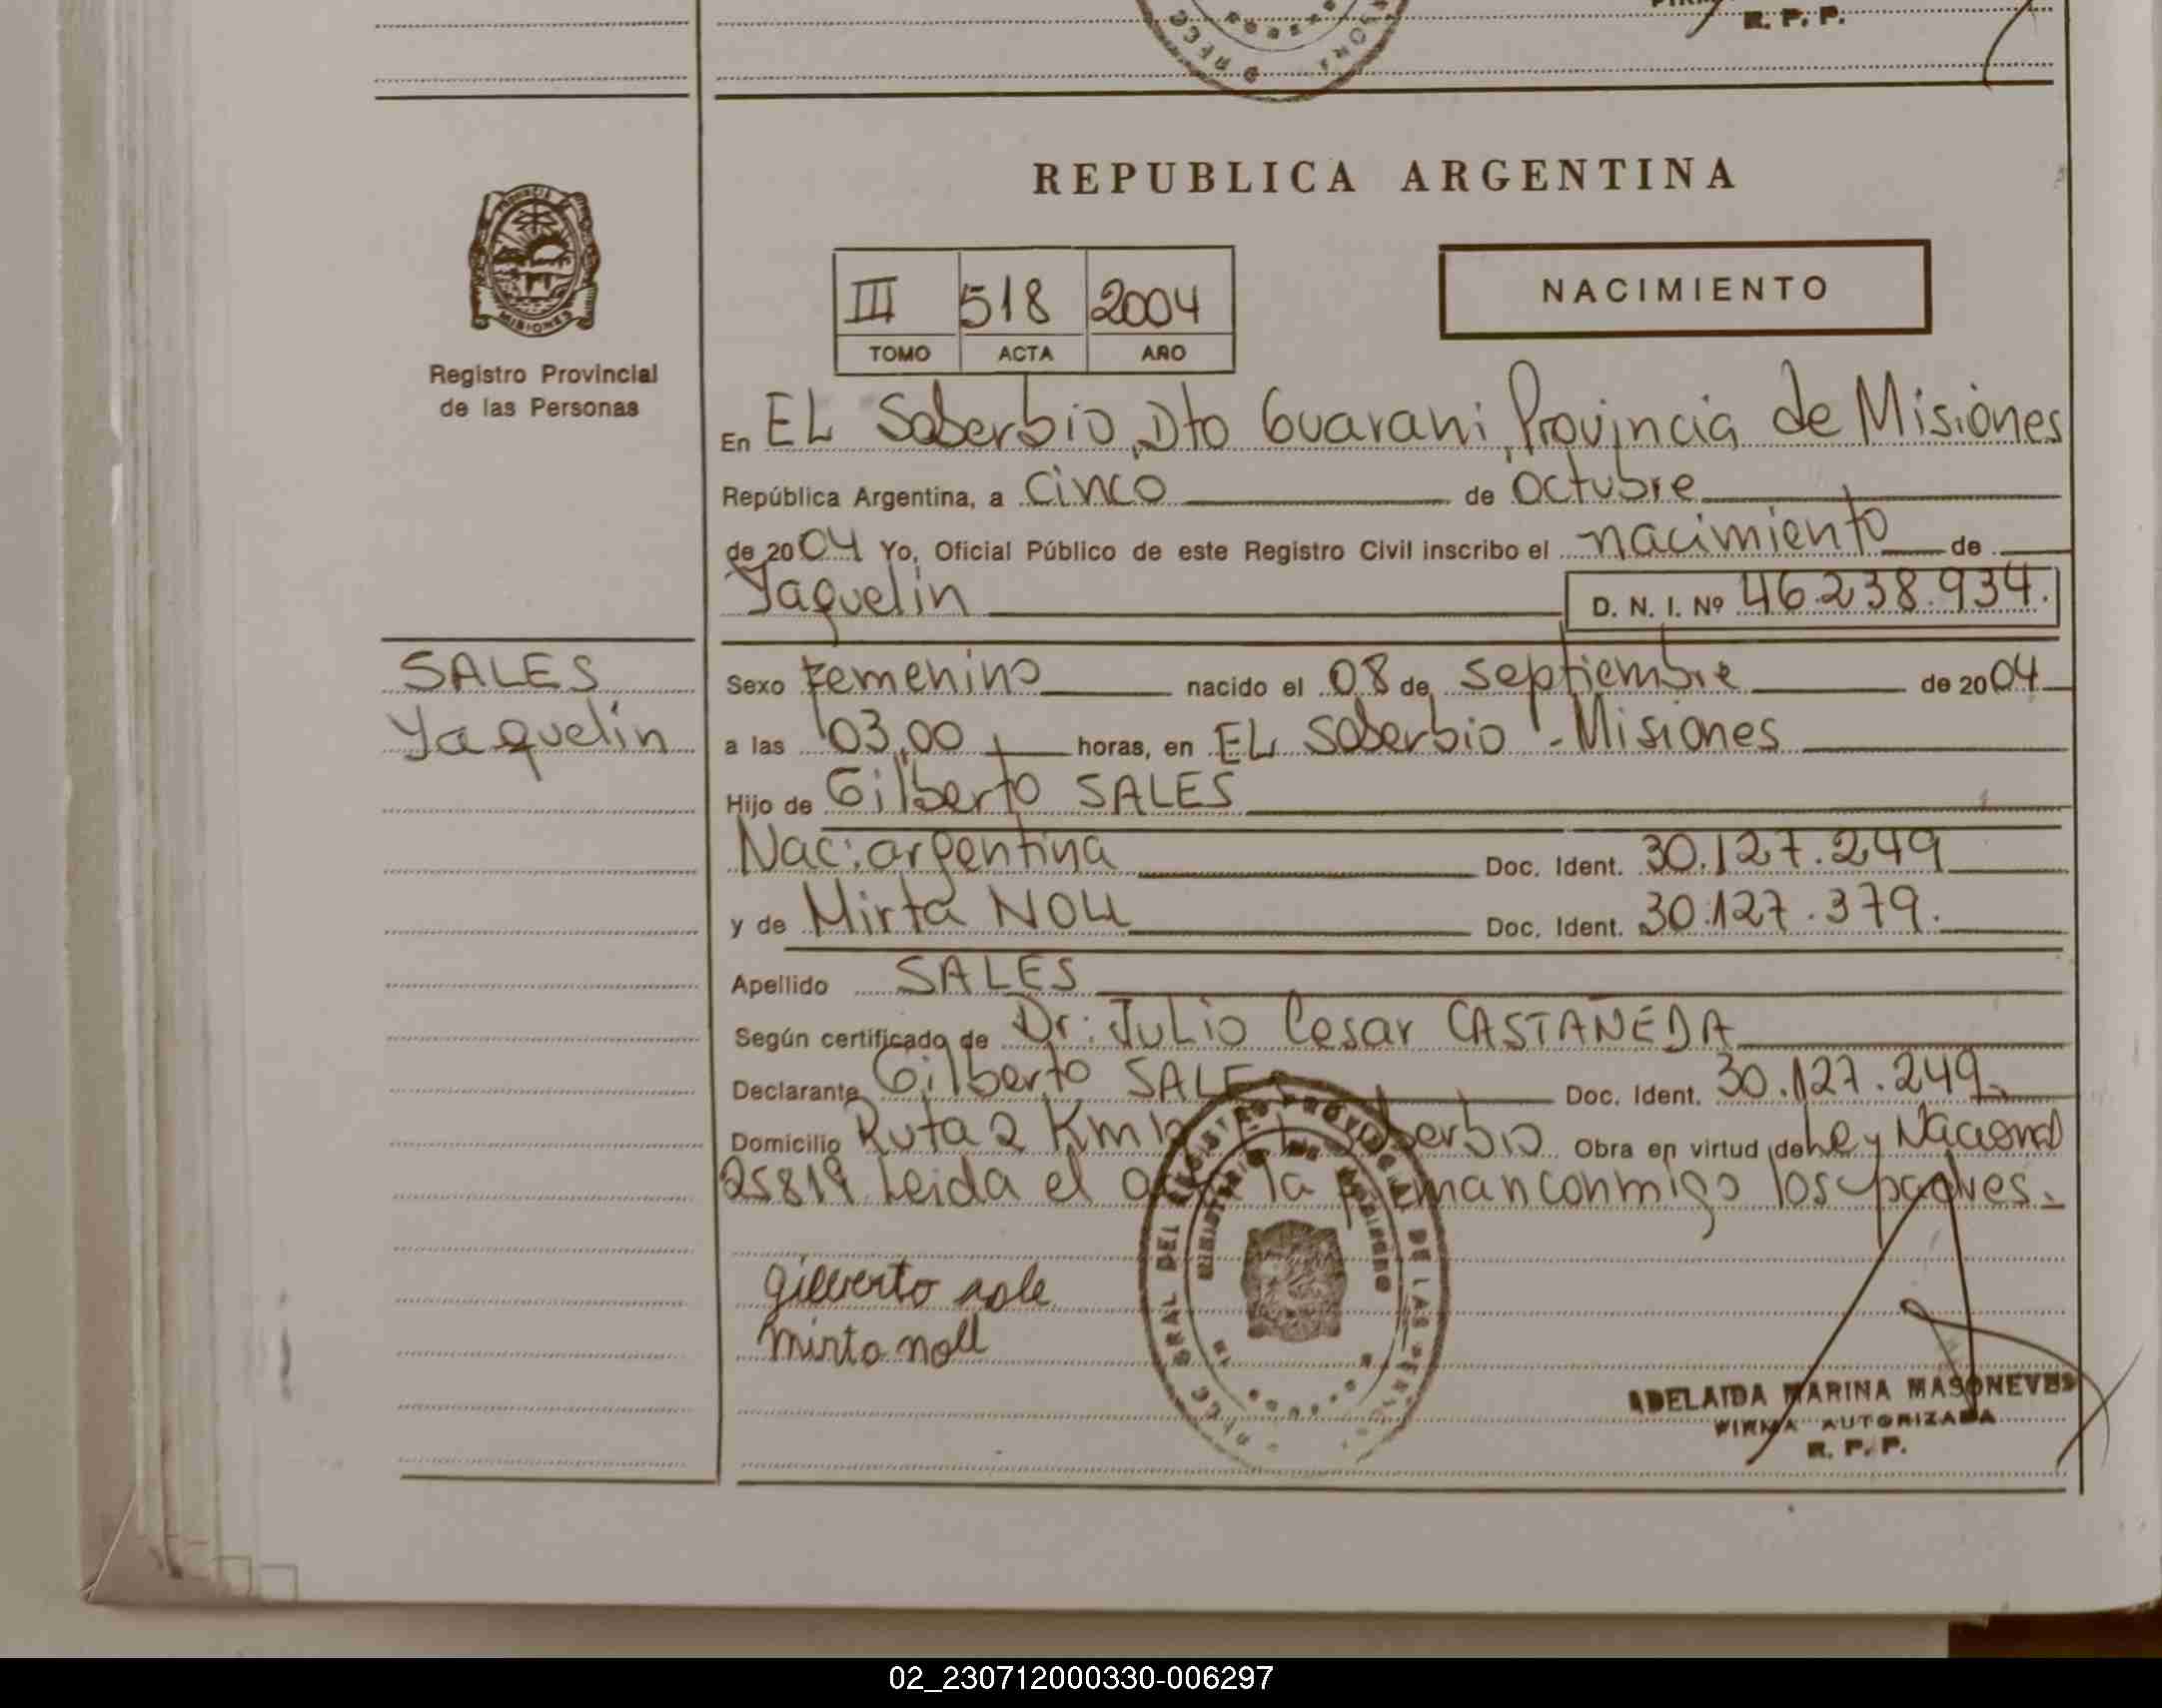 R. P. P.
REPUBLICA ARGENTINA
PROVINCIA DE
MISIONES
Registro Provincial
de las Personas
III 518 2004
TOMO ACTA AÑO
NACIMIENTO
En EL Soberbio, Dto Guarani, Provincia de Misiones
República Argentina, a cinco de octubre
de 2004 Yo, Oficial Público de este Registro Civil inscribo el nacimiento de
Yaquelin D. N. I. Nº 46.238.934.
SALES
Yaquelin
Sexo Femenino nacido el 08 de septiembre de 2004
a las 03,00 horas, en EL Soberbio - Misiones
Hijo de Gilberto SALES
Nac: argentina Doc. Ident. 30.127.249
y de Mirta NOLL Doc. Ident. 30.127.379.
Apellido SALES
Según certificado de Dr: Julio Cesar CASTAÑEDA
Declarante Gilberto SALES Doc. Ident. 30.127.249
Domicilio Ruta 2 Km Soberbio Obra en virtud de Ley Nacional
25819 Leida el acta la firman conmigo los padres.
DIREC. GRAL DEL REGISTRO PROVINCIAL DE LAS PERSONAS
MINISTERIO DE GOBIERNO
gilberto sale
mirta noll
ADELAIDA MARINA MASONEVES
FIRMA AUTORIZADA
R. P. P.
02_230712000330-006297